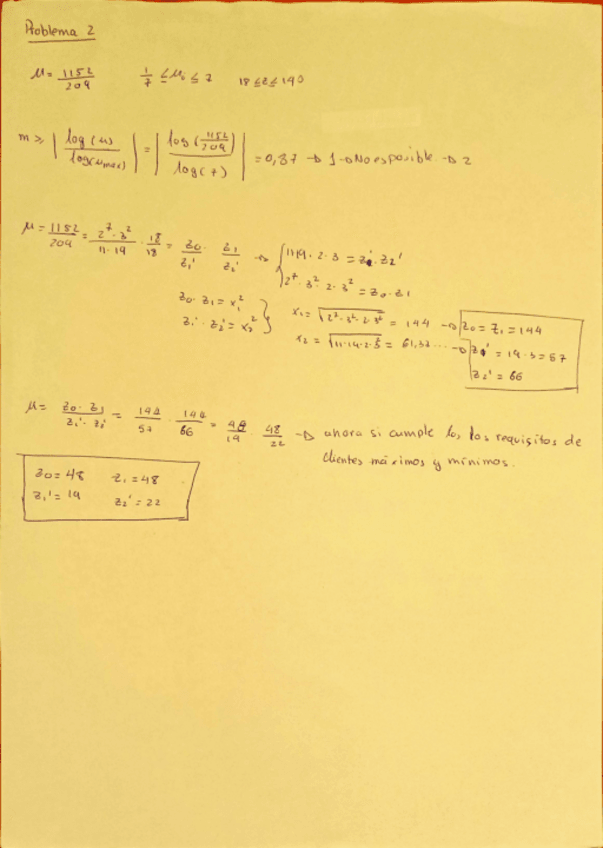 Problema 2
μ = 1152/209   1/7 ≤ μi ≤ 7   18 ≤ z ≤ 140
m ≥ | log(μ) / log(μmax) | = | log(1152/209) / log(7) | = 0,87 → 1 → No es posible → 2
μ = 1152/209 = 2^7 · 3^2 / 11 · 19 · 18/18 = z0/z1' · z1/z2' → { 11 19 · 2 · 3 = z1' · z2'
2^7 · 3^2 · 2 · 3^2 = z0 · z1
z0 · z1 = x1^2
z1' · z2' = x2^2 }
x1 = √(2^7 · 3^2 · 2 · 3^2) = 144 → z0 = z1 = 144
x2 = √(11 · 19 · 2 · 3^2) = 61,33 ... → z1' = 19 · 3 = 57
z2' = 66
μ = z0 · z1 / z1' · z2' = 144/57 · 144/66 = 48/19 · 48/22 → ahora si cumple los requisitos de
dientes máximos y mínimos.
z0 = 48   z1 = 48
z1' = 19   z2' = 22